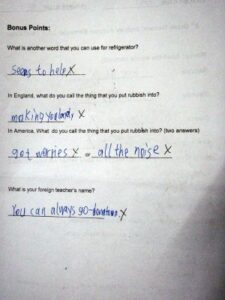 Bonus Points:
What is another word that you can use for refrigerator?
Seems to help X
In England, what do you call the thing that you put rubbish into?
making you lonely X
In America. What do you call the thing that you put rubbish into? (two answers)
got worries X or all the noise X
What is your foreign teacher's name?
You can always go-downtown X